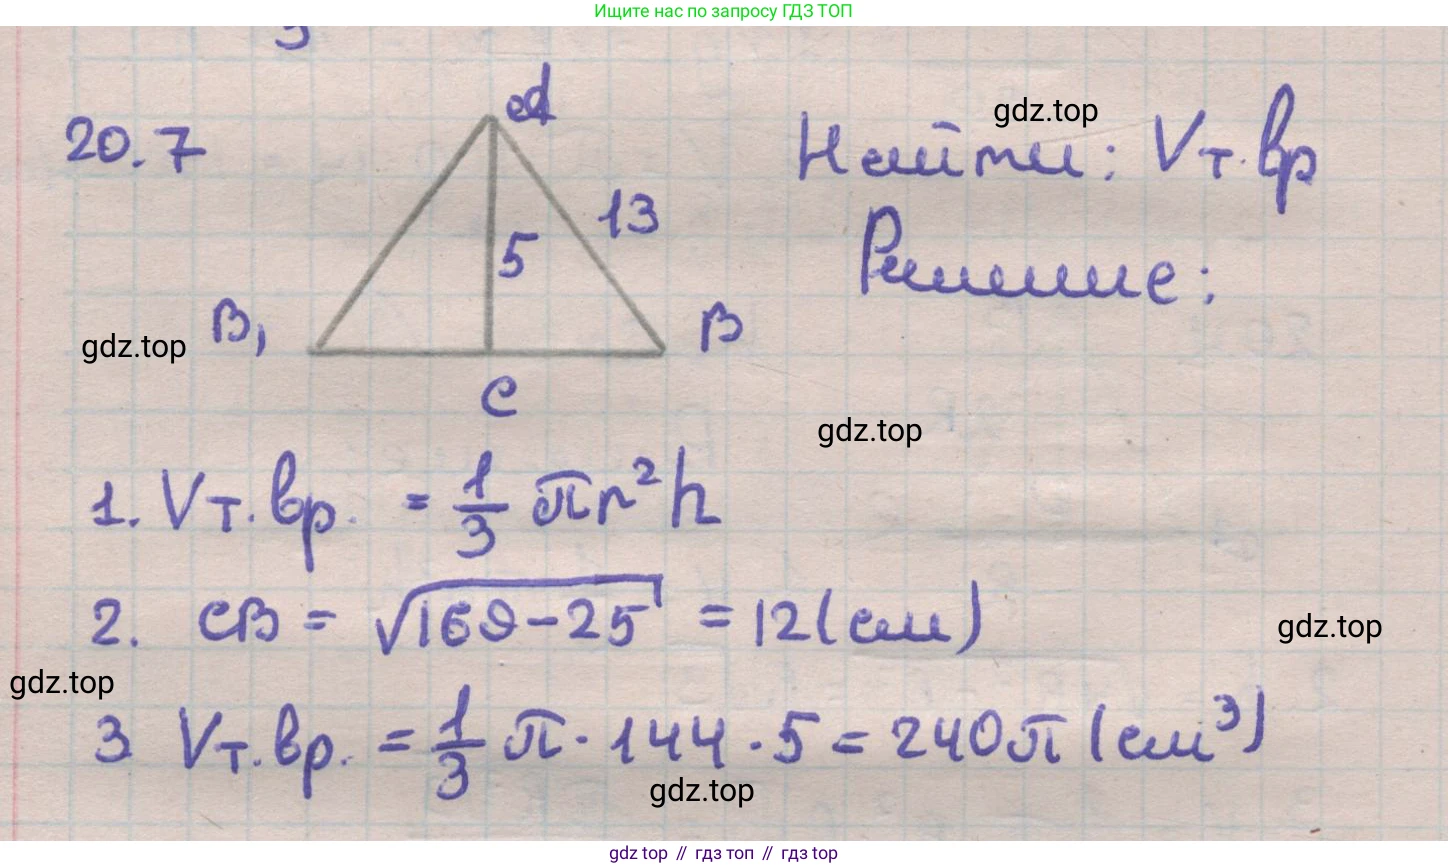 Ищите нас по запросу ГДЗ ТОП
3
20.7
A
13
5
B₁
B
C
Найти: Vт.вр
Решение:
gdz.top
gdz.top
gdz.top
1. Vт.вр. = 1/3 πr²h
2. CB = √169-25 = 12(см)
gdz.top
gdz.top
3 Vт.вр. = 1/3 π · 144 · 5 = 240π (см³)
gdz.top
gdz top // гдз топ // гдз top